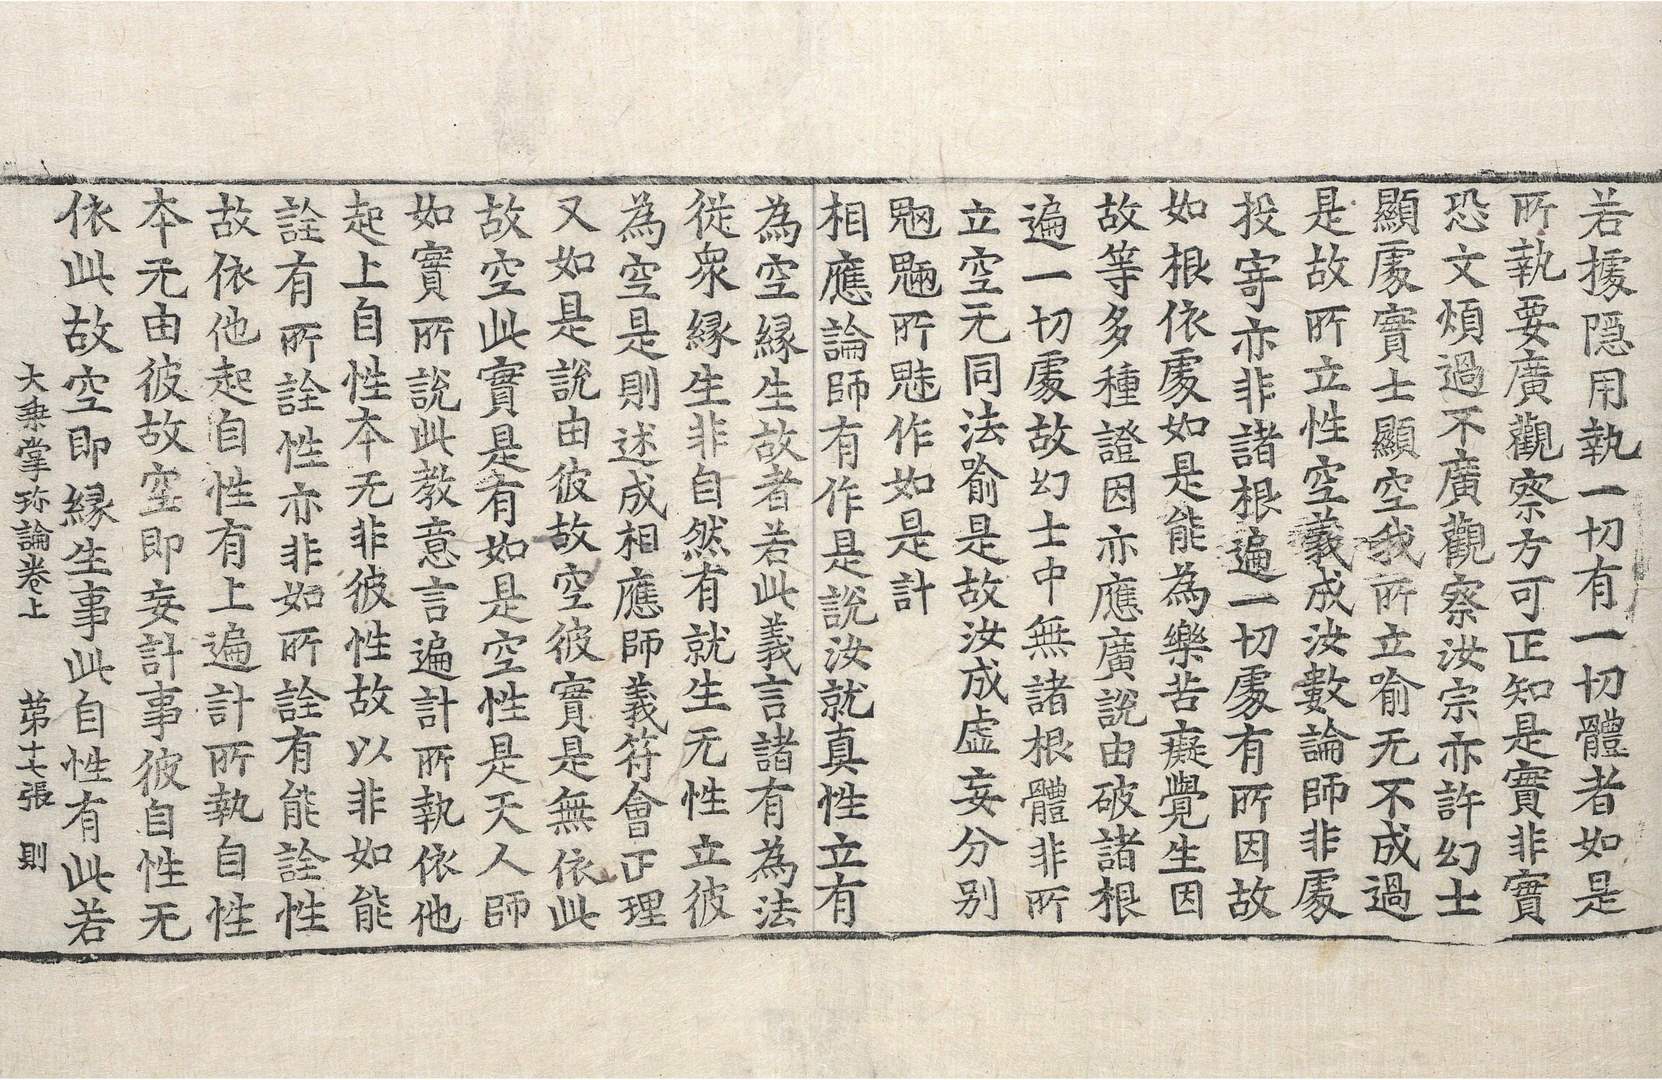 若據隱用執一切有一切體者如是
所執要廣觀察方可正知是實非實
恐文煩過不廣觀察汝宗亦許幻士
顯處實士顯空我所立喻无不成過
是故所立性空義成汝數論師非處
投寄亦非諸根遍一切處有所因故
如根依處如是能為樂苦癡覺生因
故等多種證因亦應廣說由破諸根
遍一切處故幻士中無諸根體非所
立空无同法喻是故汝成虛妄分別
魍魎所魅作如是計
相應論師有作是說汝就真性立有
為空緣生故者若此義言諸有為法
從衆緣生非自然有就生无性立彼
為空是則述成相應師義符會正理
又如是說由彼故空彼實是無依此
故空此實是有如是空性是天人師
如實所說此教意言遍計所執依他
起上自性本无非彼性故以非如能
詮有所詮性亦非如所詮有能詮性
故依他起自性有上遍計所執自性
本无由彼故空即妄計事彼自性无
依此故空即緣生事此自性有此若
大乘掌珍論卷上 第十七張 則